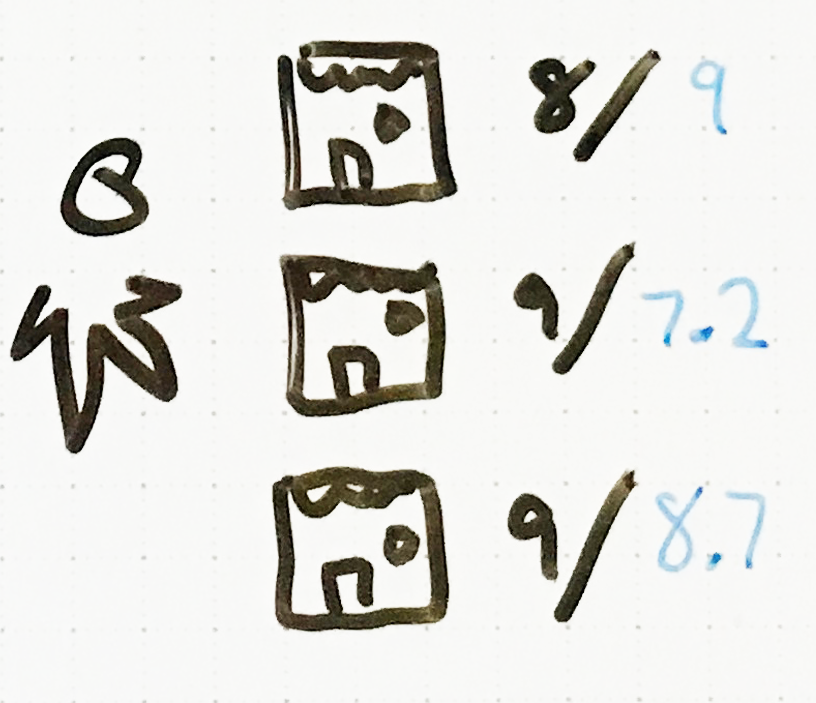 8/9
9/7.2
9/8.7